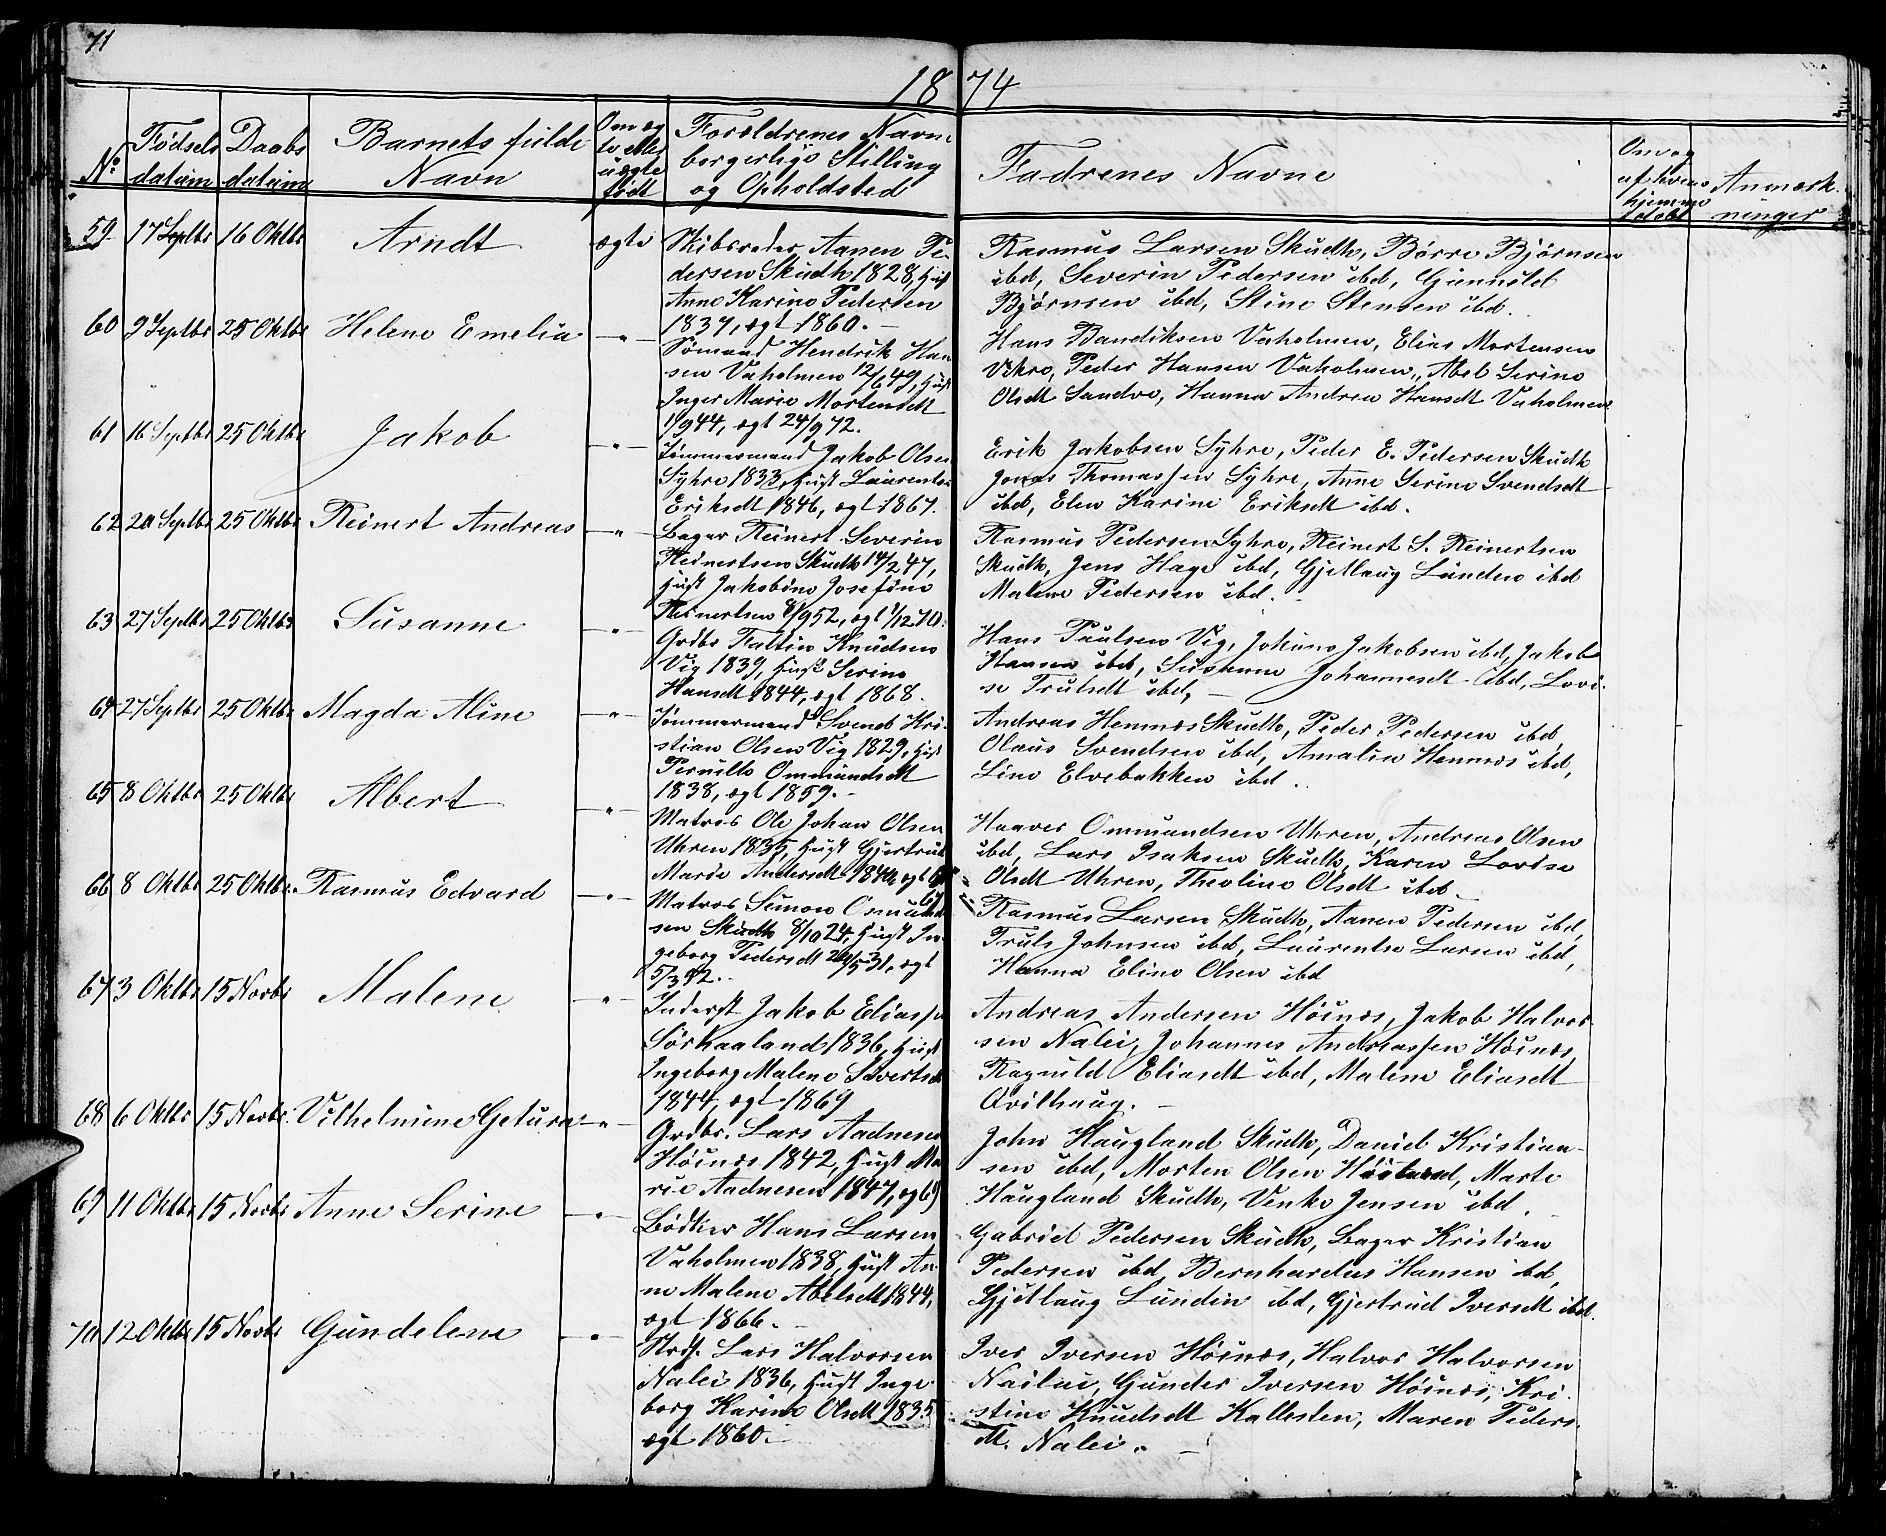 71
1874
No
Fødsels
datum
Daabs
datum
Barnets fulde
Navn
Om æg
te eller
uægte
født
Forældrenes Navne
borgerlige Stilling
og Opholdsted
Fadrenes Navne
Om og
af hvem
hjemme
døbt
Anmærk-
ninger
59 17 Septbr 16 Oktbr Arndt ægte
Skibsreder Aanen Pe-
dersen Skudh 1828, Hust
Anne Karine Pedersen
1837, ægt 1860.
Rasmus Larsen Skudh, Børre Bjørnsen
ibd, Severin Pedersen ibd, Gunnild
Bjørnsen ibd, Stine Stensen ibd.
60 9 Septbr 25 Oktbr Helene Emelia - " -
Sømand Hendrik Han
sen Vaholmen 12/6 49, Hust
Inger Marie Mortensdt
1/9 44, ægt 24/9 72.
Hans Bendiksen Vaholmen, Elias Mortensen
Vikre, Peder Hansen Vaholmen, Abel Serine
Olsdt Sandve, Hanna Andrea Hansdt Vaholmen
61 16 Septbr 25 Oktbr Jakob - " -
Tømmermand Jakob Olsen
Syhre 1833, Hust Laurentse
Eriksdt 1846, ægt 1867.
Erik Jakobsen Syhre, Peder E. Pedersen Skudh
Jonas Thomassen Syhre, Anne Serine Svendsdt
ibd, Elen Karine Eriksdt ibd.
62 20 Septbr 25 Oktbr Reinert Andreas - " -
Bager Reinert Severin
Reinertsen Skudh 14/2 47,
Hust Jakobine Josefine
Reinertsen 8/9 52, ægt 1/12 70.
Rasmus Pedersen Syhre, Reinert S. Reinertsen
Skudh, Jens Hage ibd, Gjetlaug Lunden ibd
Malene Pedersen ibd.
63 27 Septbr 25 Oktbr Susanne - " -
Grdbr Faltin Knudsen
Vig 1839, Hust Serine
Hansdt 1844, ægt 1868.
Hans Paulsen Vig, Johans Jakobsen ibd, Jakob
Hansen ibd, Susanne Johannesdt ibd, Lovi-
se Trulsdt ibd,
64 27 Septbr 25 Oktbr Magda Aline - " -
Tømmermand Svend Kri-
stian Olsen Vig 1829, Hust
Pernille Ommundsdt
1838, ægt 1859.
Andreas Hemnes Skudh, Peder Pedersen ibd
Olaus Svendsen ibd, Amalia Hemnes ibd,
Line Elvebakken ibd.
65 8 Oktbr 25 Oktbr Albert - " -
Matros Ole Johan Olsen
Uhren 1835, Hust Gjertrud
Marie Andersdt 1840, ægt
Haaver Ommundsen Uhren, Andreas Olsen
ibd, Lars Isaksen Skudh, Karen Lovise
Olsdt Uhren, Theoline Olsdt ibd.
66 8 Oktbr 25 Oktbr. Rasmus Edvard - " -
Matros Simon Osmund
sen Skudh 8/10 24, Hust In-
geborg Pedersdt 26/5 31, ægt
5/3 42.
Rasmus Larsen Skudh, Aanen Pedersen ibd,
Truls Johnsen ibd, Laurentse Larsen ibd,
Hanna Eline Olsen ibd
67 3 Oktbr 15 Novbr Malene - " -
Inderst Jakob Eliassen
Sørhaaland 1836, Hust
Ingeborg Malene Sivertsdt
1844, ægt 1869
Andreas Andersen Høines, Jakob Halvor-
sen Nalei, Johannes Andreassen Høines
Ragnild Eliasdt ibd, Malene Eliasdt
Qvilhaug.
68 6 Oktbr 15 Novbr. Vilhelmine Getura - " -
Grdbr. Lars Aadnesen
Høines 1842, Hust Ma
rie Aadnesen 1847, æg 69
John Haugland Skudh, Daniel Kristian-
sen ibd, Morten Olsen Høiland, Marte
Haugland Skudh, Venke Jensen ibd.
69 11 Oktbr 15 Novbr Anne Serine - " -
Bødker Hans Larsen
Vaholmen 1838, Hust An-
ne Malene Abelsdt 1844,
ægt 1866.
Gabriel Pedersen Skudh, Bager Kristian
Pedersen ibd Bernhardus Hansen ibd,
Gjetlaug Lundin ibd, Gjertrud Iversdt ibd.
70 12 Oktbr 15 Novbr Gundelene - " -
Strds. Lars Halvorsen
Nalei 1836, Hust Inge-
borg Karine Olsdt 1835
ægt 1860.
Iver Iversen Høines, Halvor Halvorsen
Nailei, Gunder Iversen Høines, Kri-
stine Knudsdt Kallesten, Maren Peders-
dt. Nalei.